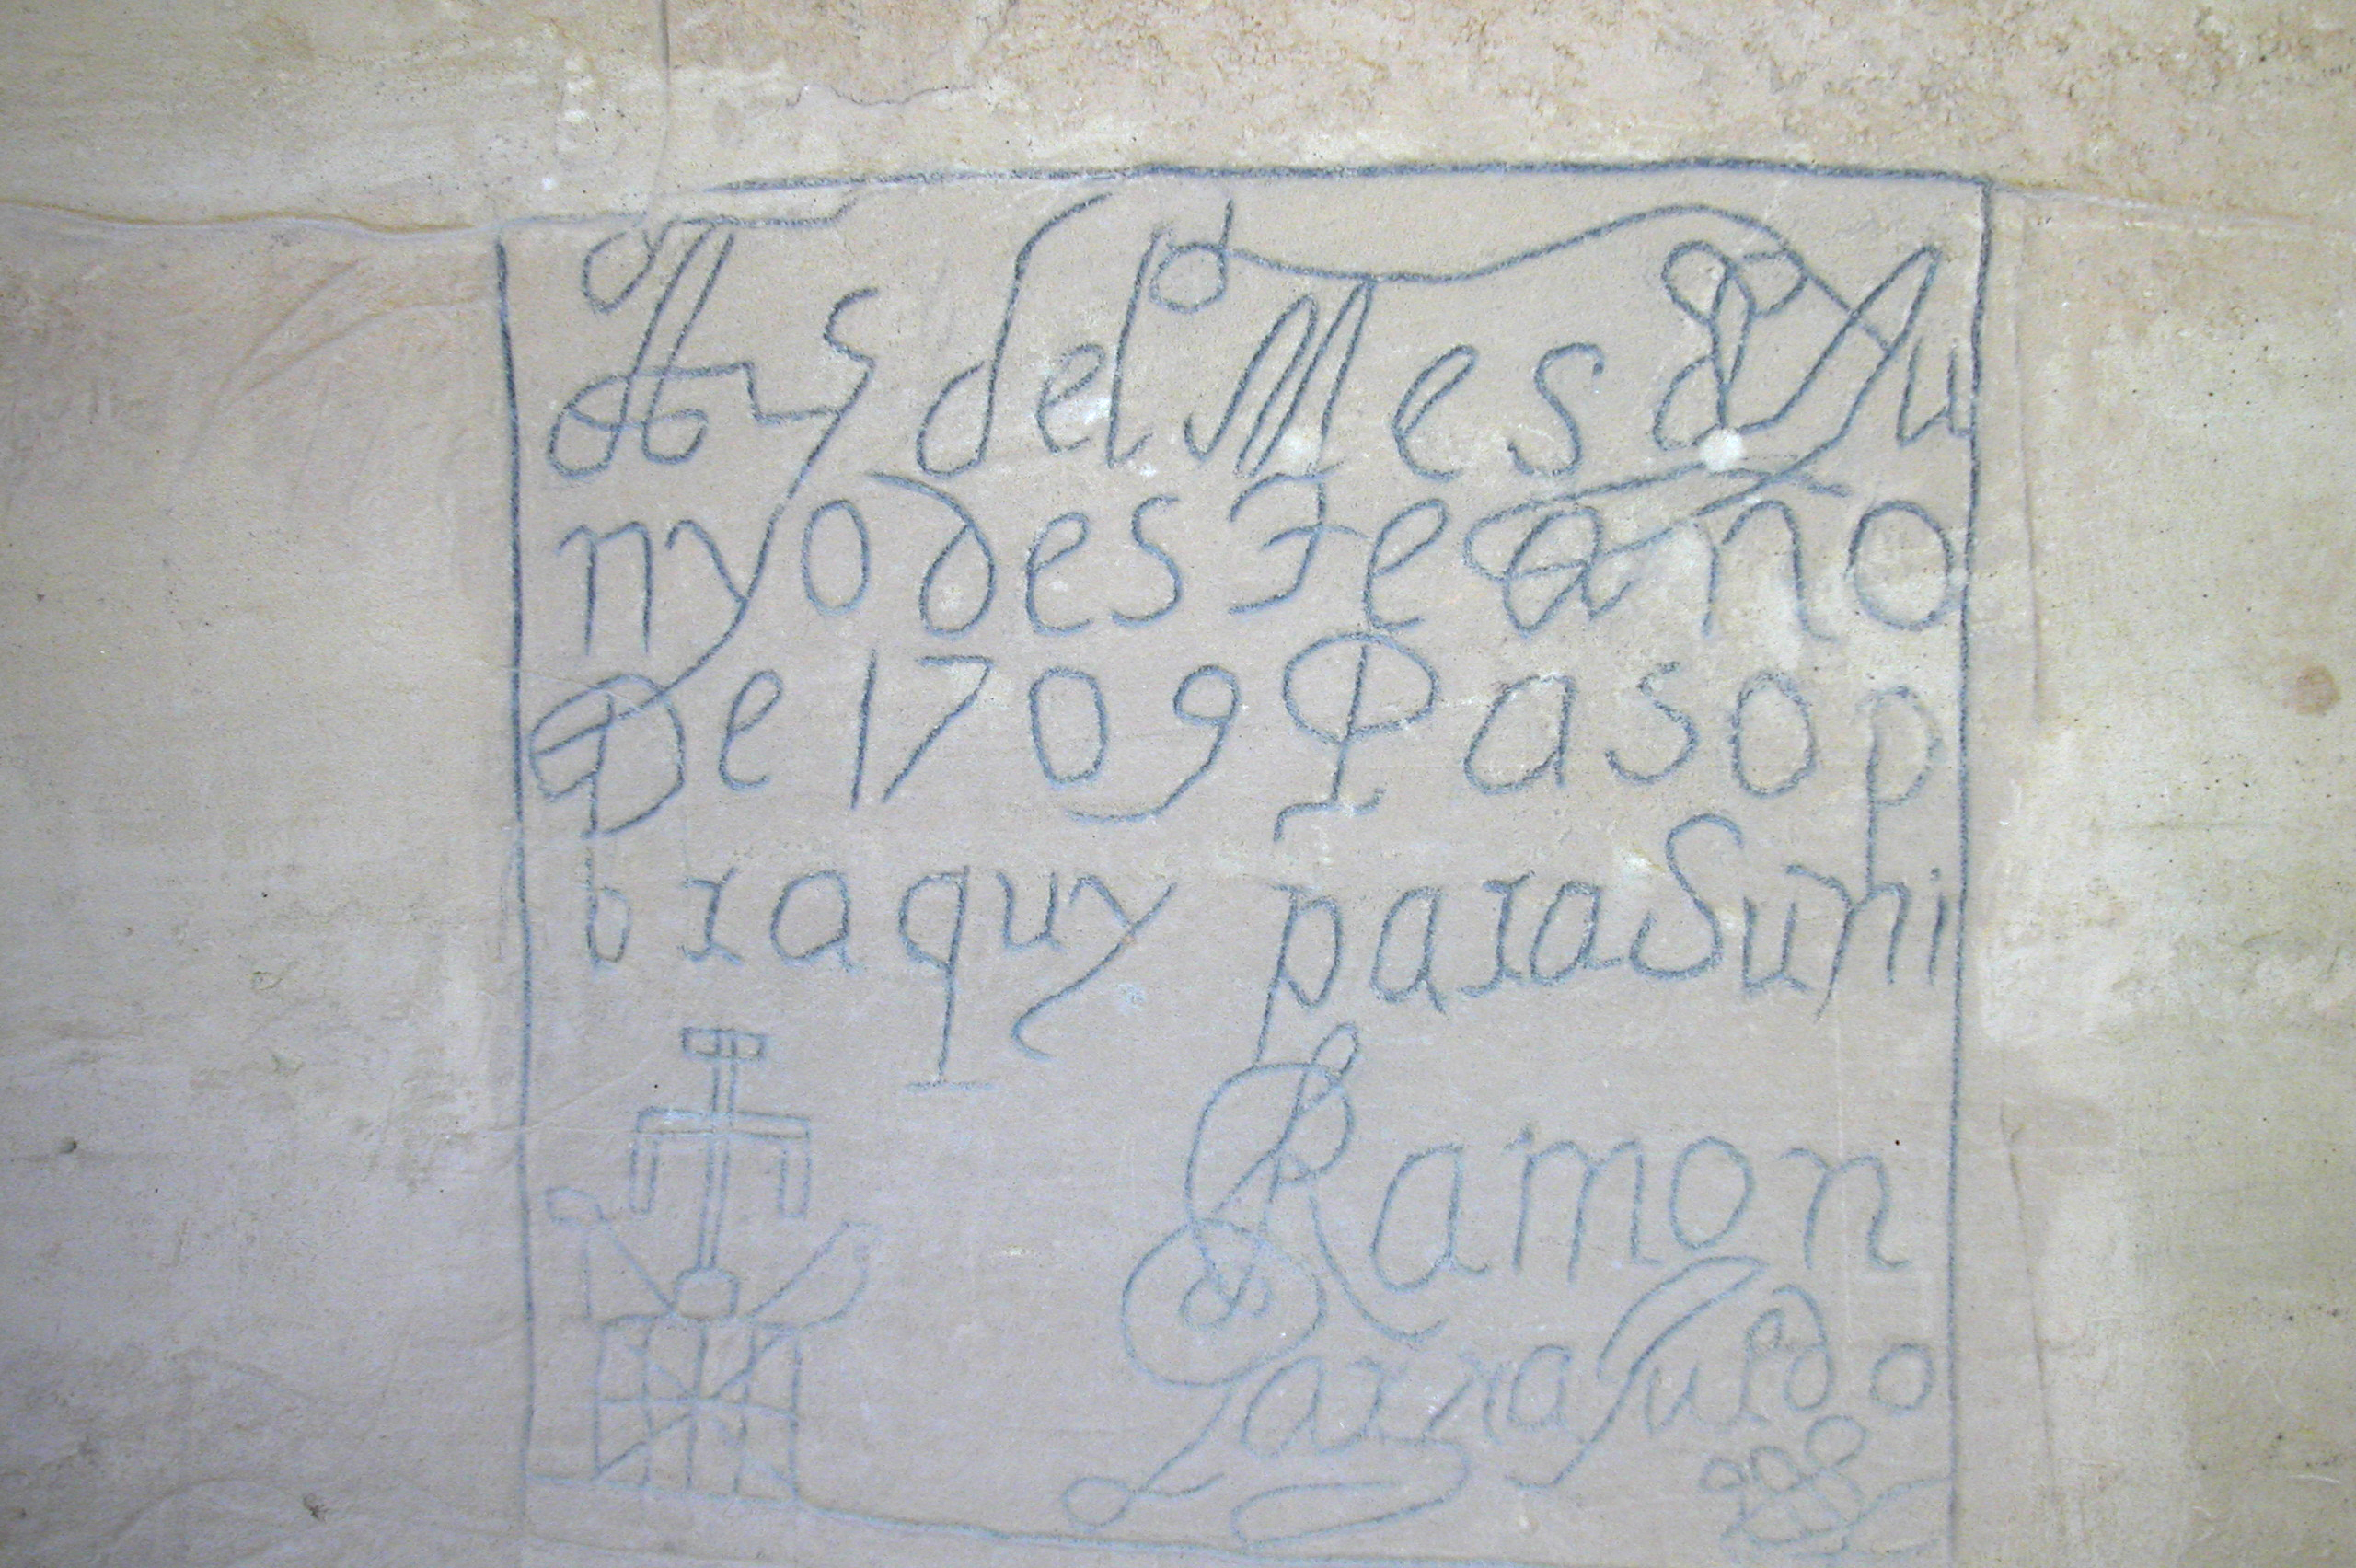 A 5 del Mes d Ju
nyo deste año
De 1709 Paso p
or aquy para Suñi
Ramon
Garxa Jurdo